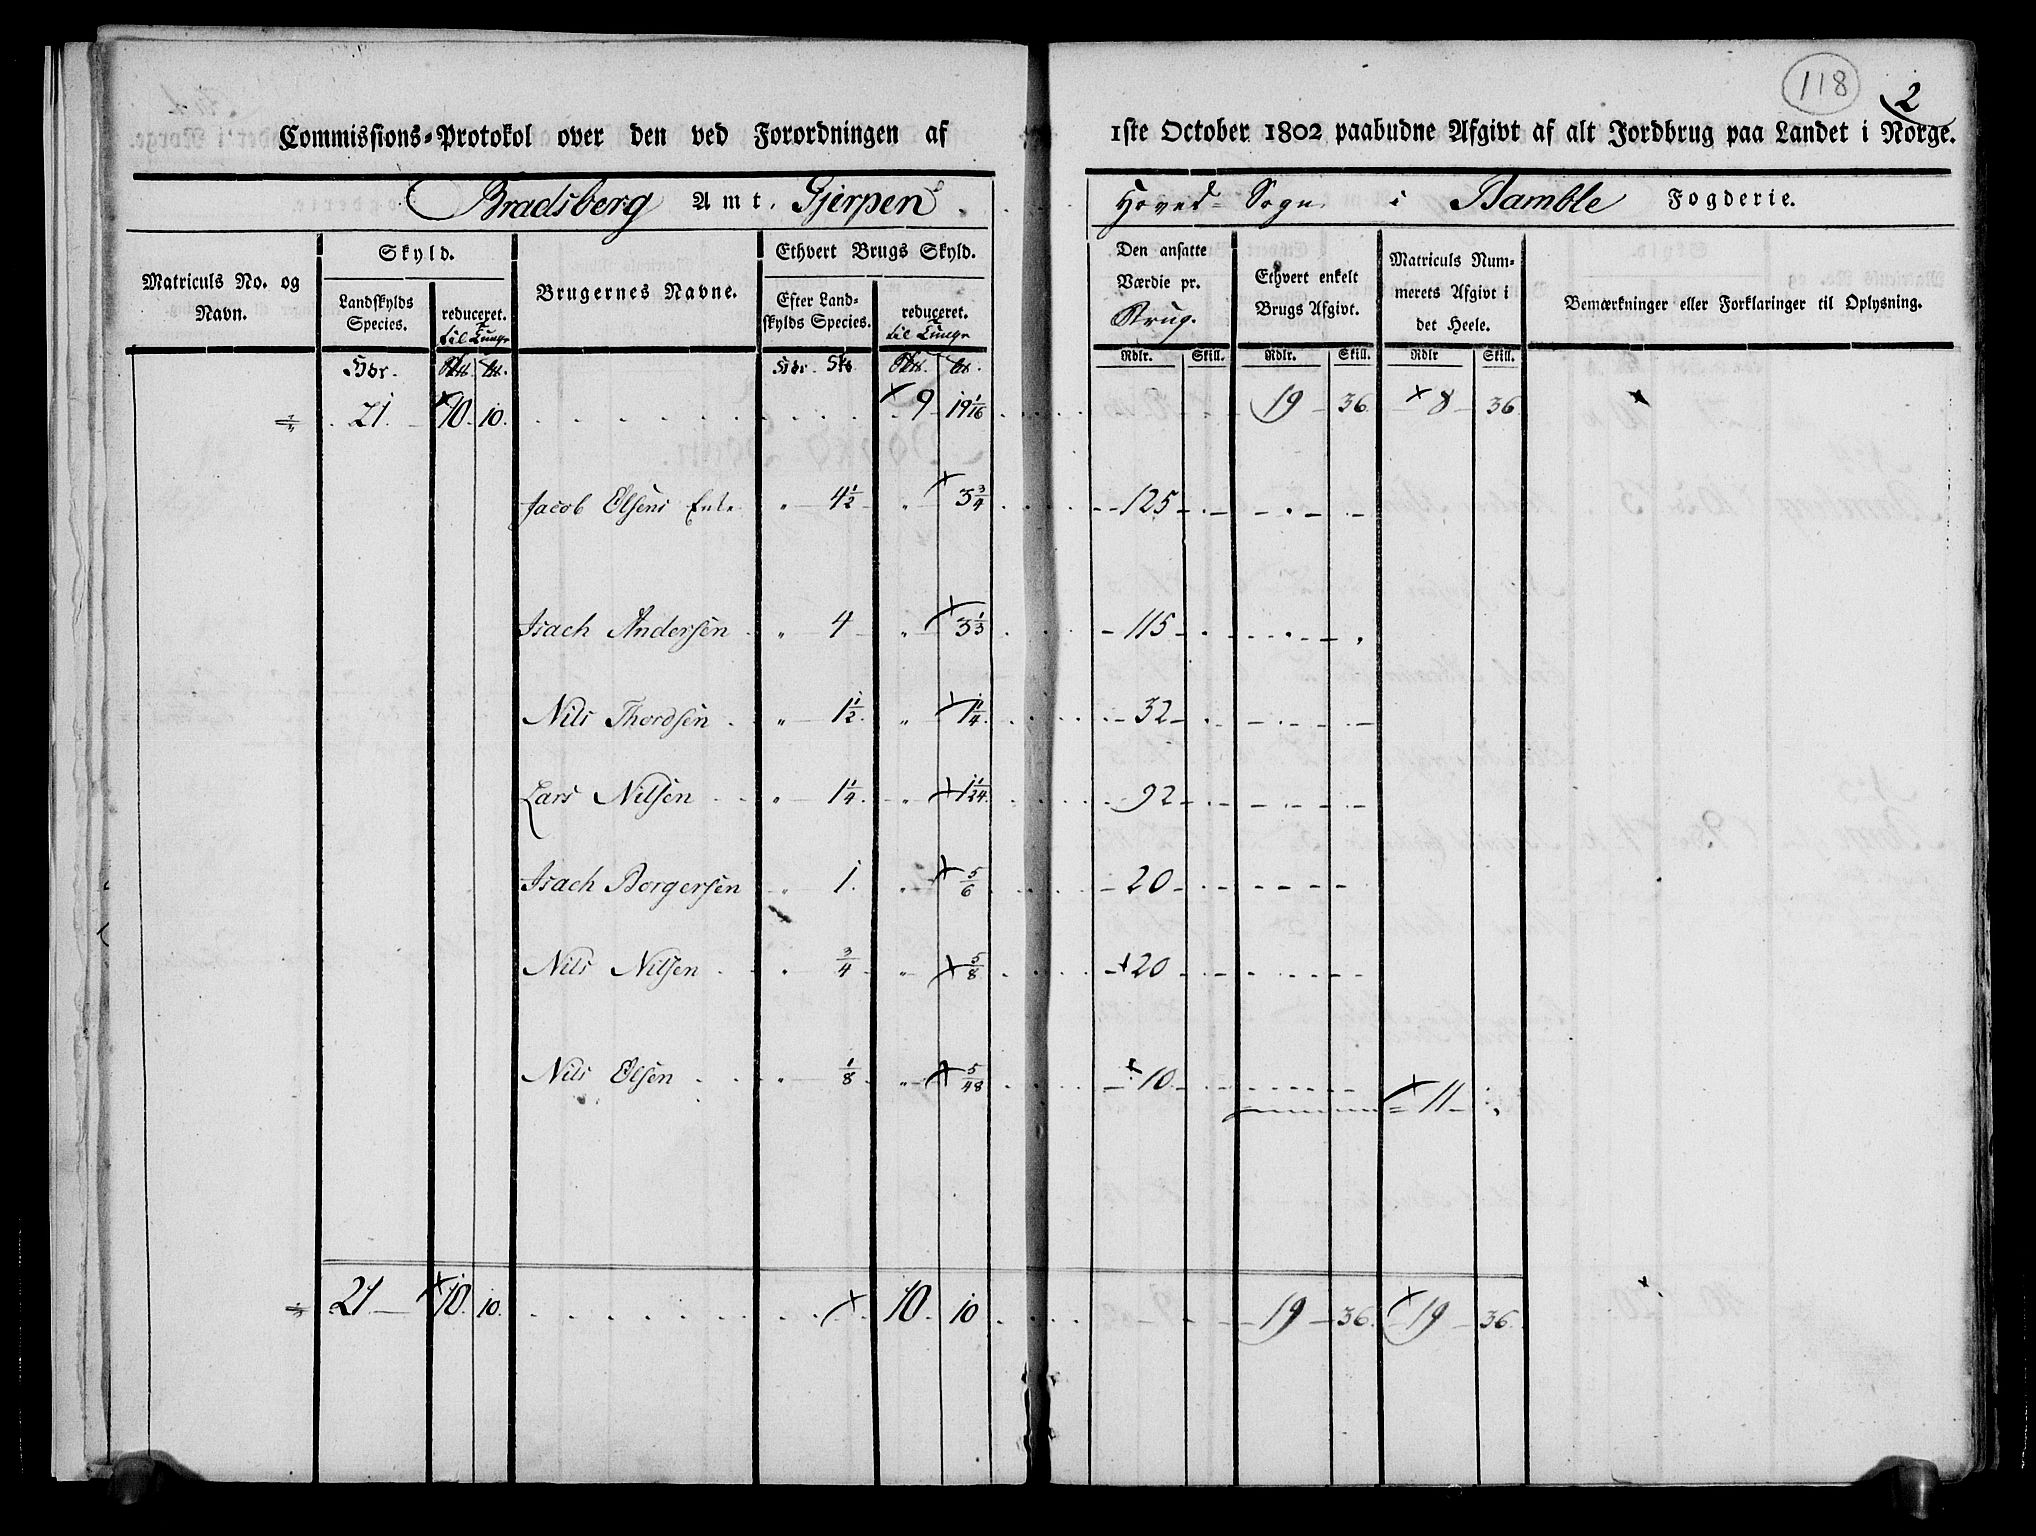 118
2
Commissions-Protokol over den ved Forordningen af 1ste October 1802 paabudne Afgivt af alt Jordbrug paa Landet i Norge.
Bradsberg Amt. Gjerpen Hoved-Sogn i Bamble Fogderie.
Matriculs No. og Navn.
Skyld.
Landskylds Species.
reduceret. til Tunge
Brugernes Navne.
Ethvert Brugs Skyld.
Efter Landskylds Species.
reduceret. til Tunge
Den ansatte Værdie pr. Brug.
Ethvert enkelt Brugs Afgivt.
Matriculs Nummerets Afgivt i det Heele.
Bemærkninger eller Forklaringer til Oplysning.
Rdlr. Skill. Rdlr. Skill. Rdlr Skill.
21. 10 10. 9 19 1/16 19 36 8 36
Jacob Olsens Enke " 4 1/2 " 3 3/4 125
Isach Andersen " 4 " 3 1/3 115
Nils Thordsen " 1 1/2 " 1 1/4 32
Lars Nilsen " 1 1/4 " 1 1/24 92
Isach Borgersen " 1. " 5/6 20
Nils Nilsen " 3/4 " 5/8 20
Nils Olsen " 1/8 " 5/48 10 11
21 10. 10. 10. 10 19 36. 19 36.